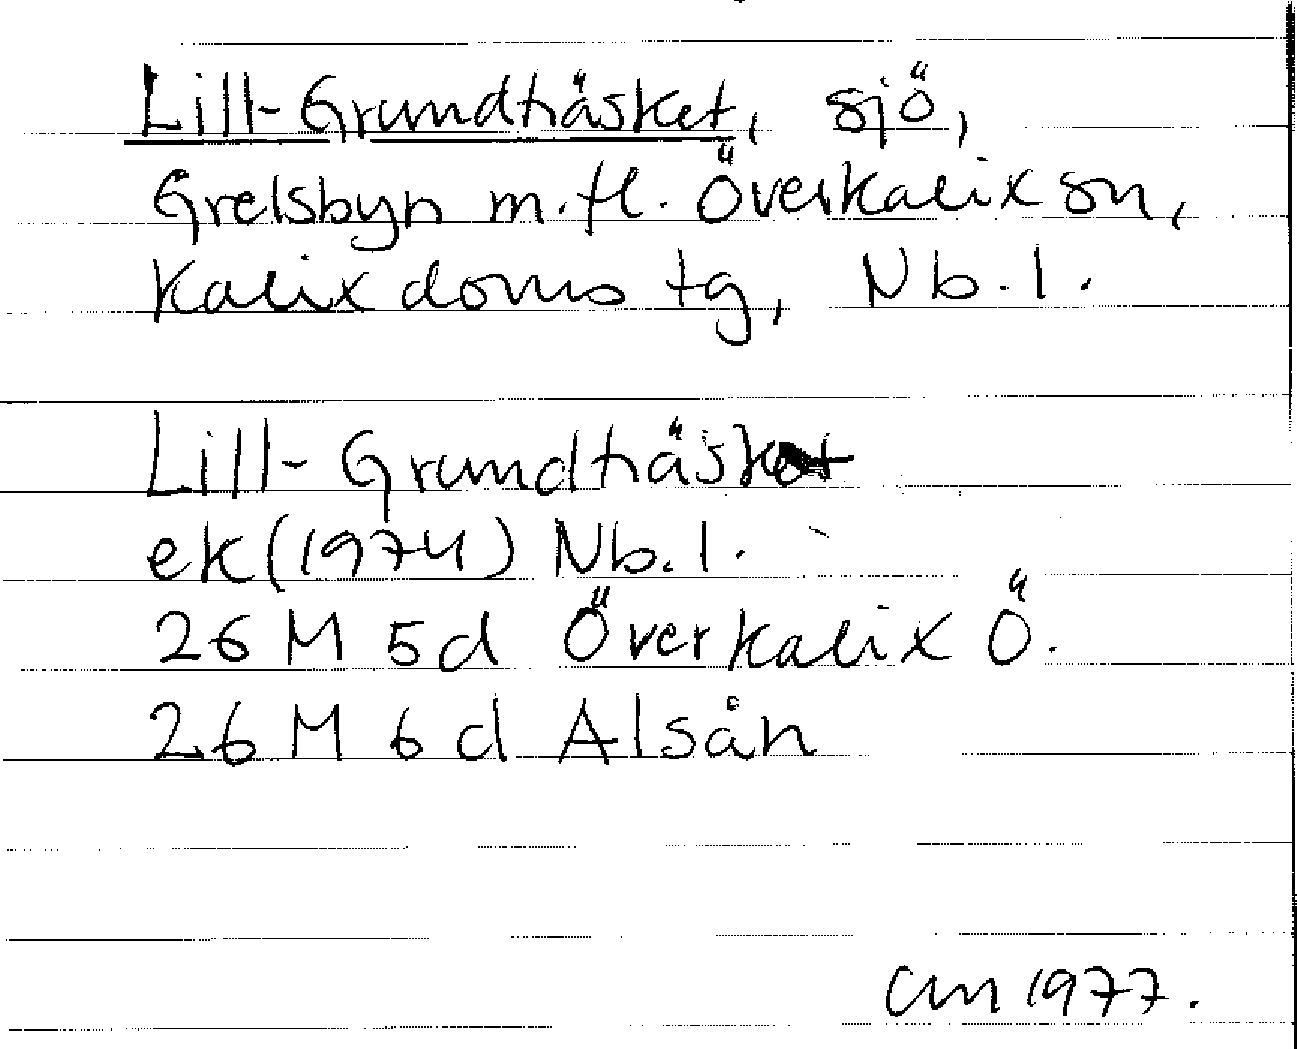 Lill-Grundträsket, sjö,
Grelsbyn m.fl. Överkalix sn,
Kalix doms tg, Nb. l.
Lill-Grundträsket
ek (1974) Nb. l.
26 M 5d Överkalix Ö.
26 M 6d Alsån
CM 1977.